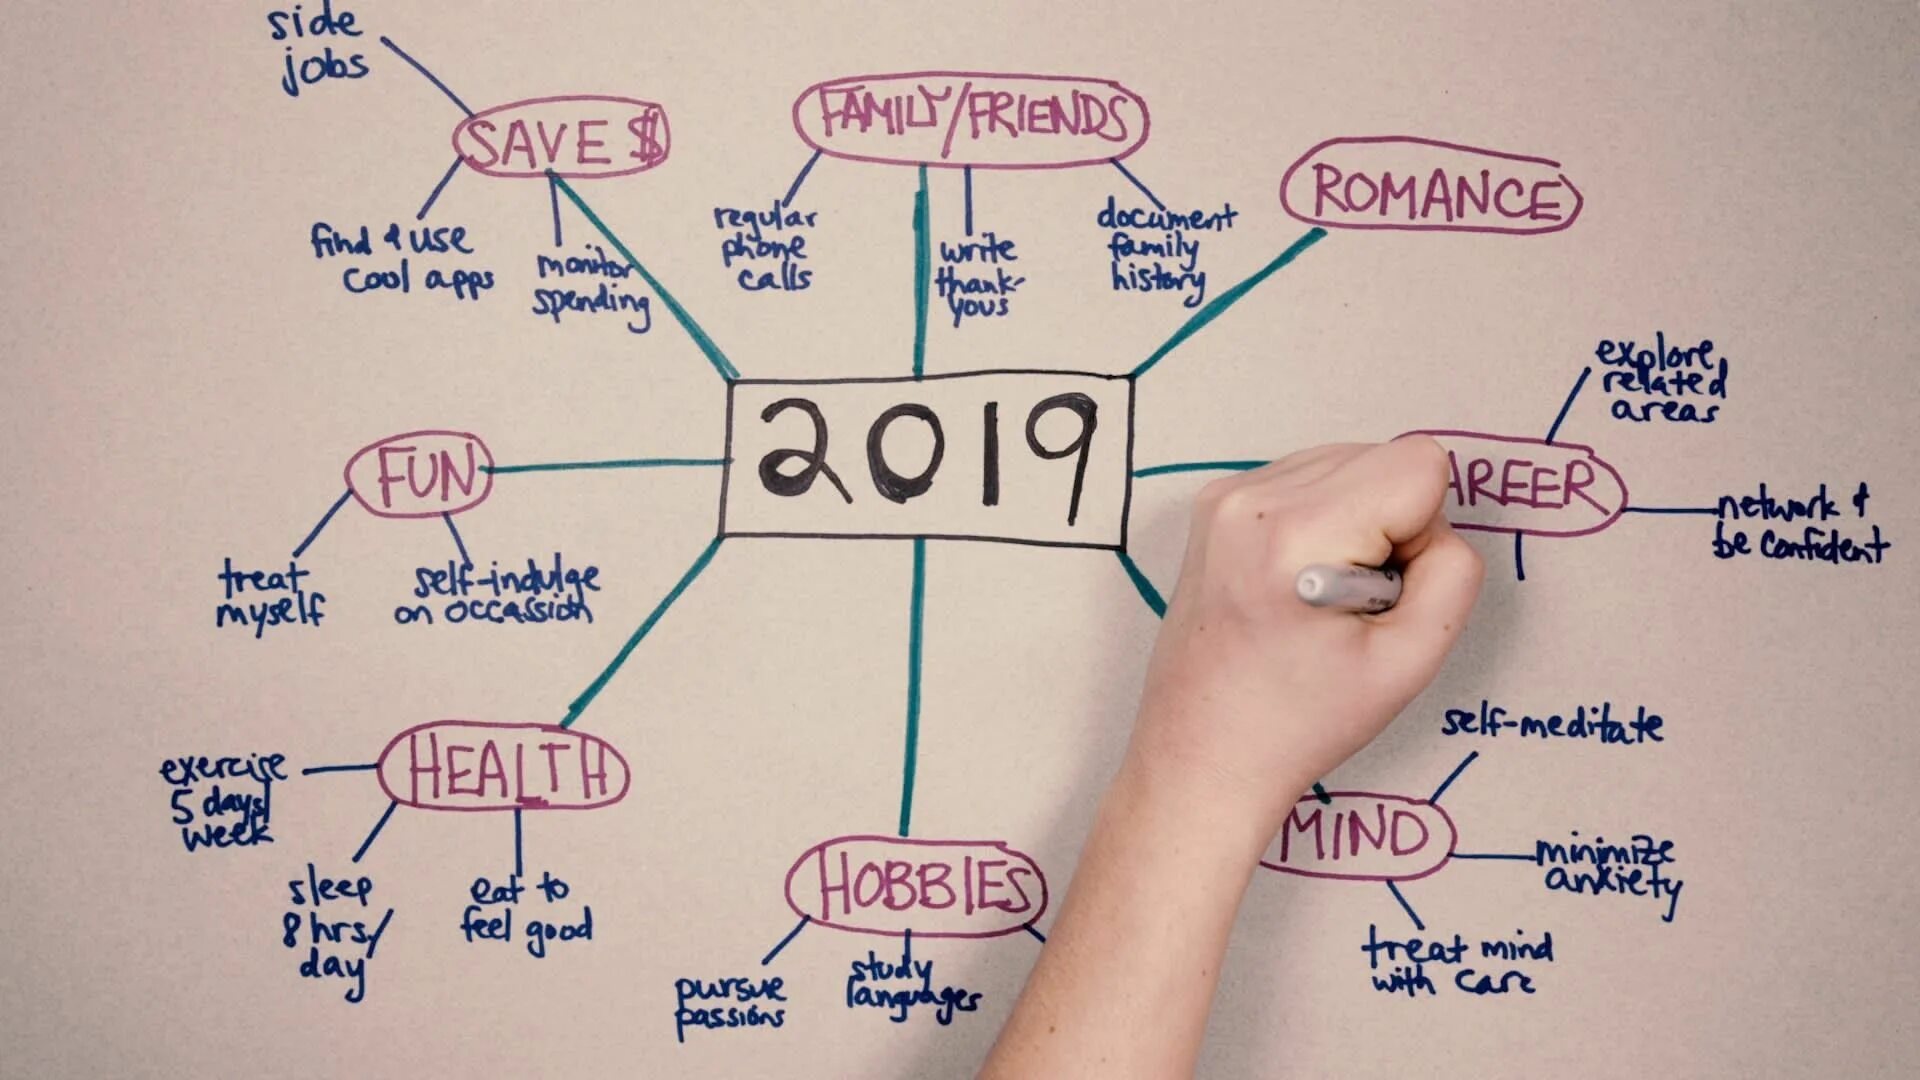 side
jobs
SAVE $
find & use
cool apps
monitor
spending
FAMILY/FRIENDS
regular
phone
calls
write
thank-
yous
document
family
history
ROMANCE
explore
related
areas
AREER
network &
be confident
2019
FUN
treat
myself
self-indulge
on occassion
HEALTH
exercise
5 days/
week
sleep
8 hrs/
day
eat to
feel good
HOBBIES
pursue
passions
study
languages
MIND
self-meditate
minimize
anxiety
treat mind
with care